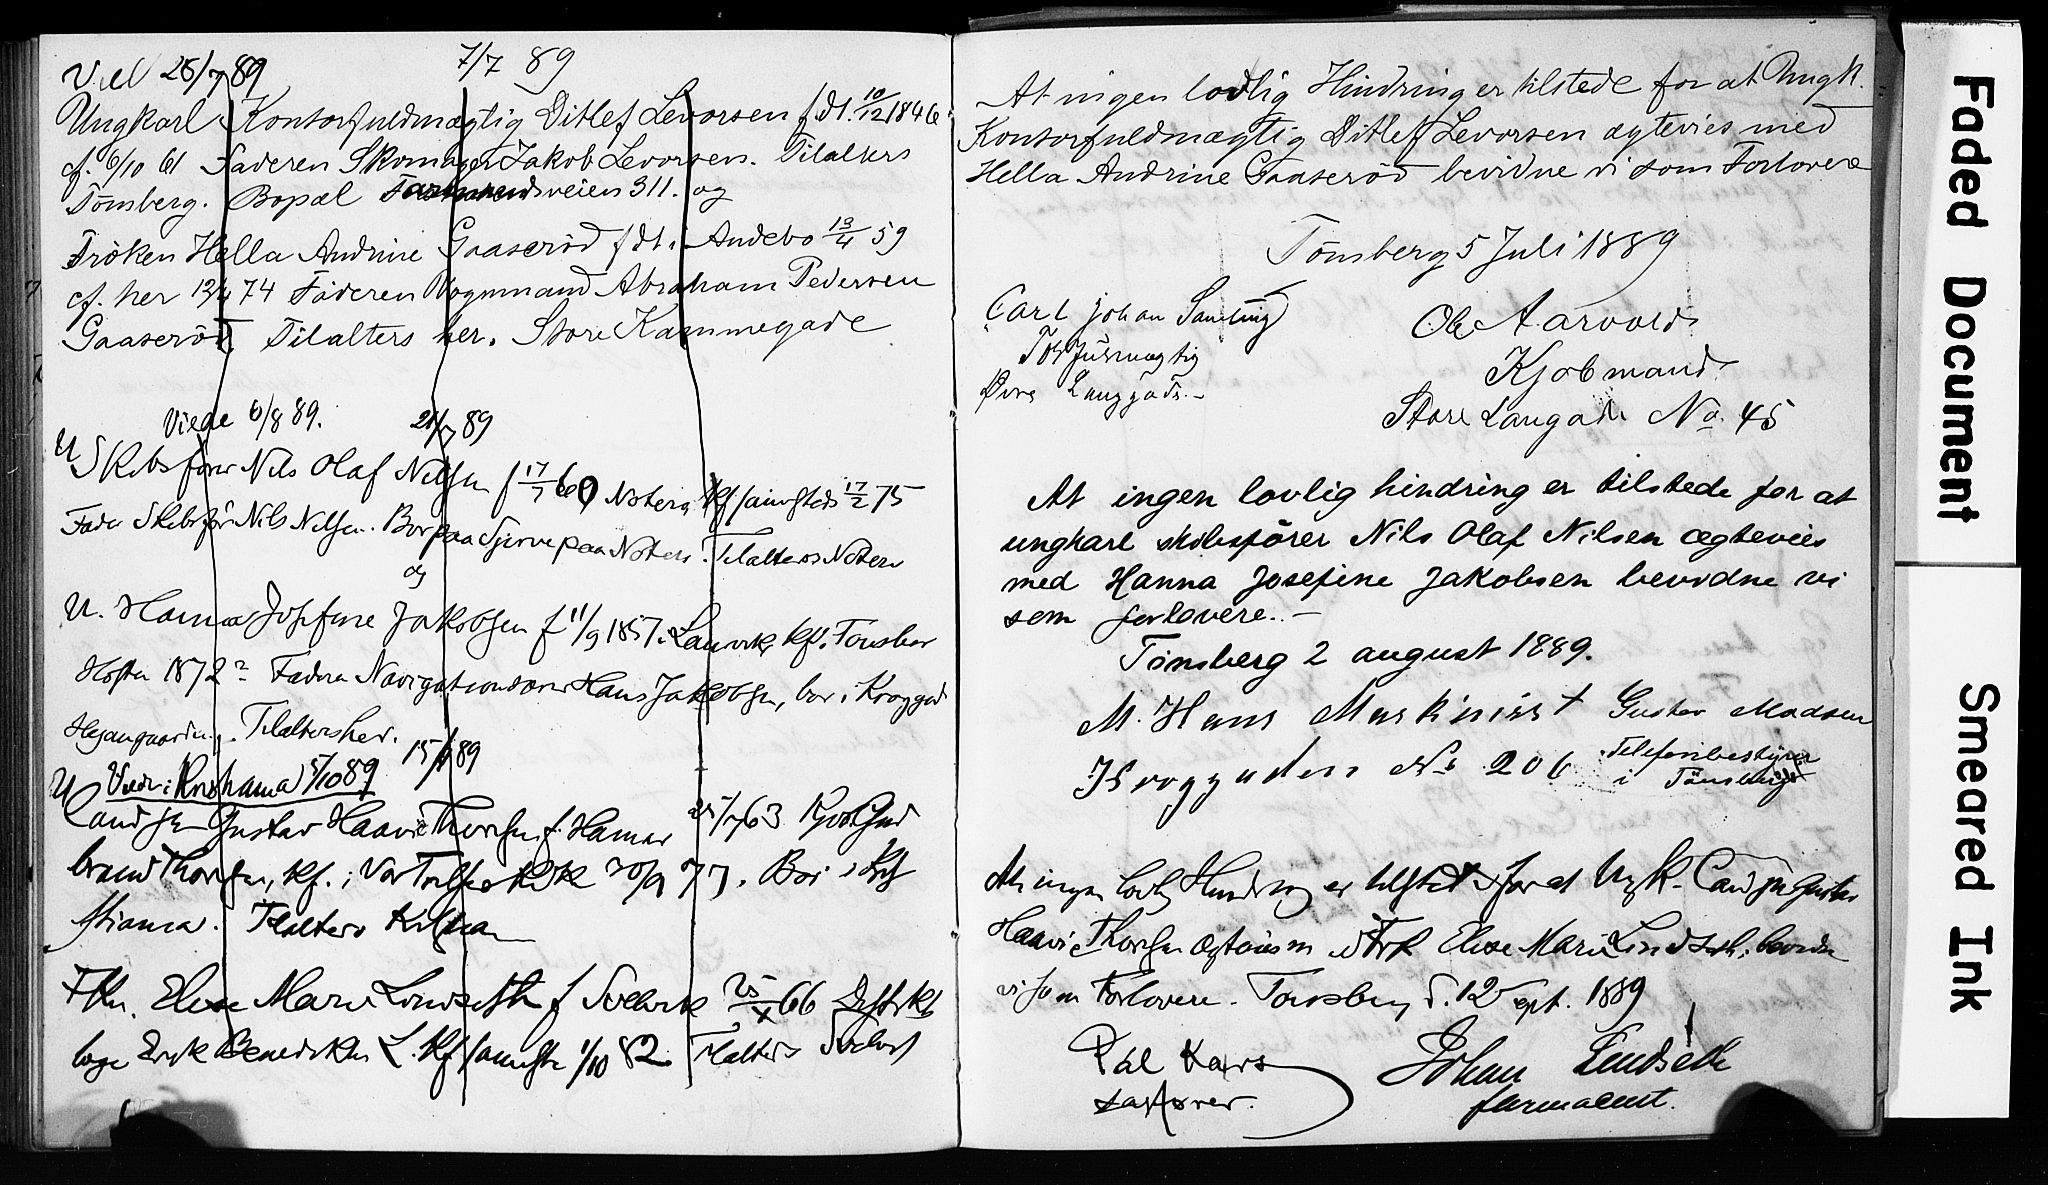 Viel 26/7 89 7/7 89
Ungkarl Kontorfuldmægtig Ditlef Levorsen fdt. 10/12 1846
cf. 6/10 61 Faderen Skomager Jakob Levorsen. Tilalters
Tønsberg. Bopæl Farmandsveien 311. og
Frøken Hella Andrine Gaaserød fdt. i Andebo 13/4 59
cf. her 12/4 74 Faderen Vognmand Abraham Pedersen
Gaaserød, Tilalters her. Store Kammegade
Viede 6/8 89. 21/7 89
U Skibsfører Nils Olaf Nilsen f 17/7 60 Noterø Kf samsteds 17/2 75
Fader Skibsfør Nils Nilsen. Bor paa paa Noterø. Tilalters Noterø
og
U. Hanna Josefine Jakobsen f 11/9 1857. Laurvik, Kf. Tønsber
Høsten 1872? Faderen Hans Jakobsen, bor i Kroggad
Tilalters her. 15/9 89
U Viede i Kristiania 5/10 89
Cand jur Gustav Haavie Thoresen f. Hamar 25/7 63
Thoresen, Kf. i Vor Frelsers Kirke 30/9 77. Bor i Kri
stiania. Tilalters
Frkn. Elise Marie Lindseth f Svelvik 25/x 66 Distrikts
læge Benedikt L. Kf samst 1/10 82 Tilalters
At ingen lovlig Hindring er tilstede for at Ungk.
Kontorfuldmægtig Ditleff Levorsen ægtevies med
Hella Andrine Gaaserød bevidne vi som Forlovere
Tønsberg 5 Juli 1889
Carl Johan
Ole Aarvold
Kjøbmand
Øvre Langgade.-
Store Langade No. 45
At ingen lovlig hindring er tilstede for at
ungkarl skibsfører Nils Olaf Nilsen ægtevies
med Hanna Josefine Jakobsen bevidne vi
som forlovere.-
Tønsberg 2 august 1889.
M. Hans Maskinist Gustav Madsen
Kroggaden No 206 Telefonbestyrer
i Tønsberg
At ingen lovlig Hindring er tilstede for at Ungk. Cand jur Gustav
Haavie Thoresen ægtevies m. Frk Elise Marie Lindseth, bevidne
vi som Forlovere. Tønsberg d. 12 Sept. 1889
Johan Lindseth
farmaceut.
Faded Document
Smeared Ink